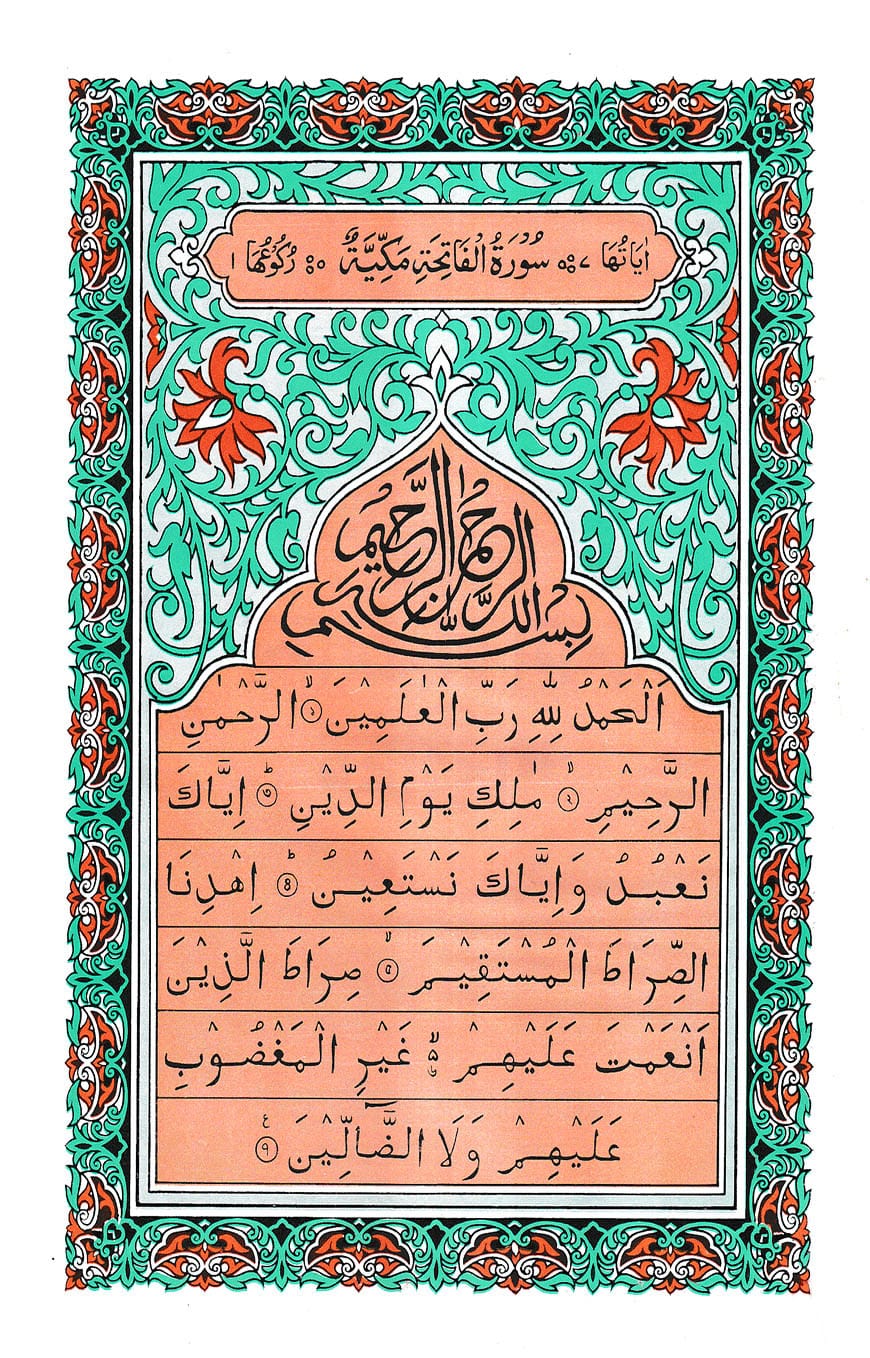 اٰيَاتُهَا ٧ سُوۡرَةُ الۡفَاتِحَةِ مَكِّيَّةٌ رُكُوۡعُهَا ١
بِسۡمِ اللّٰهِ الرَّحۡمٰنِ الرَّحِيۡمِ
اَلۡحَمۡدُ لِلّٰهِ رَبِّ الۡعٰلَمِيۡنَ ۙ﴿١﴾ الرَّحۡمٰنِ
الرَّحِيۡمِ ۙ﴿٢﴾ مٰلِكِ يَوۡمِ الدِّيۡنِ ؕ﴿٣﴾ اِيَّاكَ
نَعۡبُدُ وَاِيَّاكَ نَسۡتَعِيۡنُ ؕ﴿٤﴾ اِهۡدِنَا
الصِّرَاطَ الۡمُسۡتَقِيۡمَ ۙ﴿٥﴾ صِرَاطَ الَّذِيۡنَ
اَنۡعَمۡتَ عَلَيۡهِمۡ ۙ غَيۡرِ الۡمَغۡضُوۡبِ
عَلَيۡهِمۡ وَلَا الضَّآلِّيۡنَ